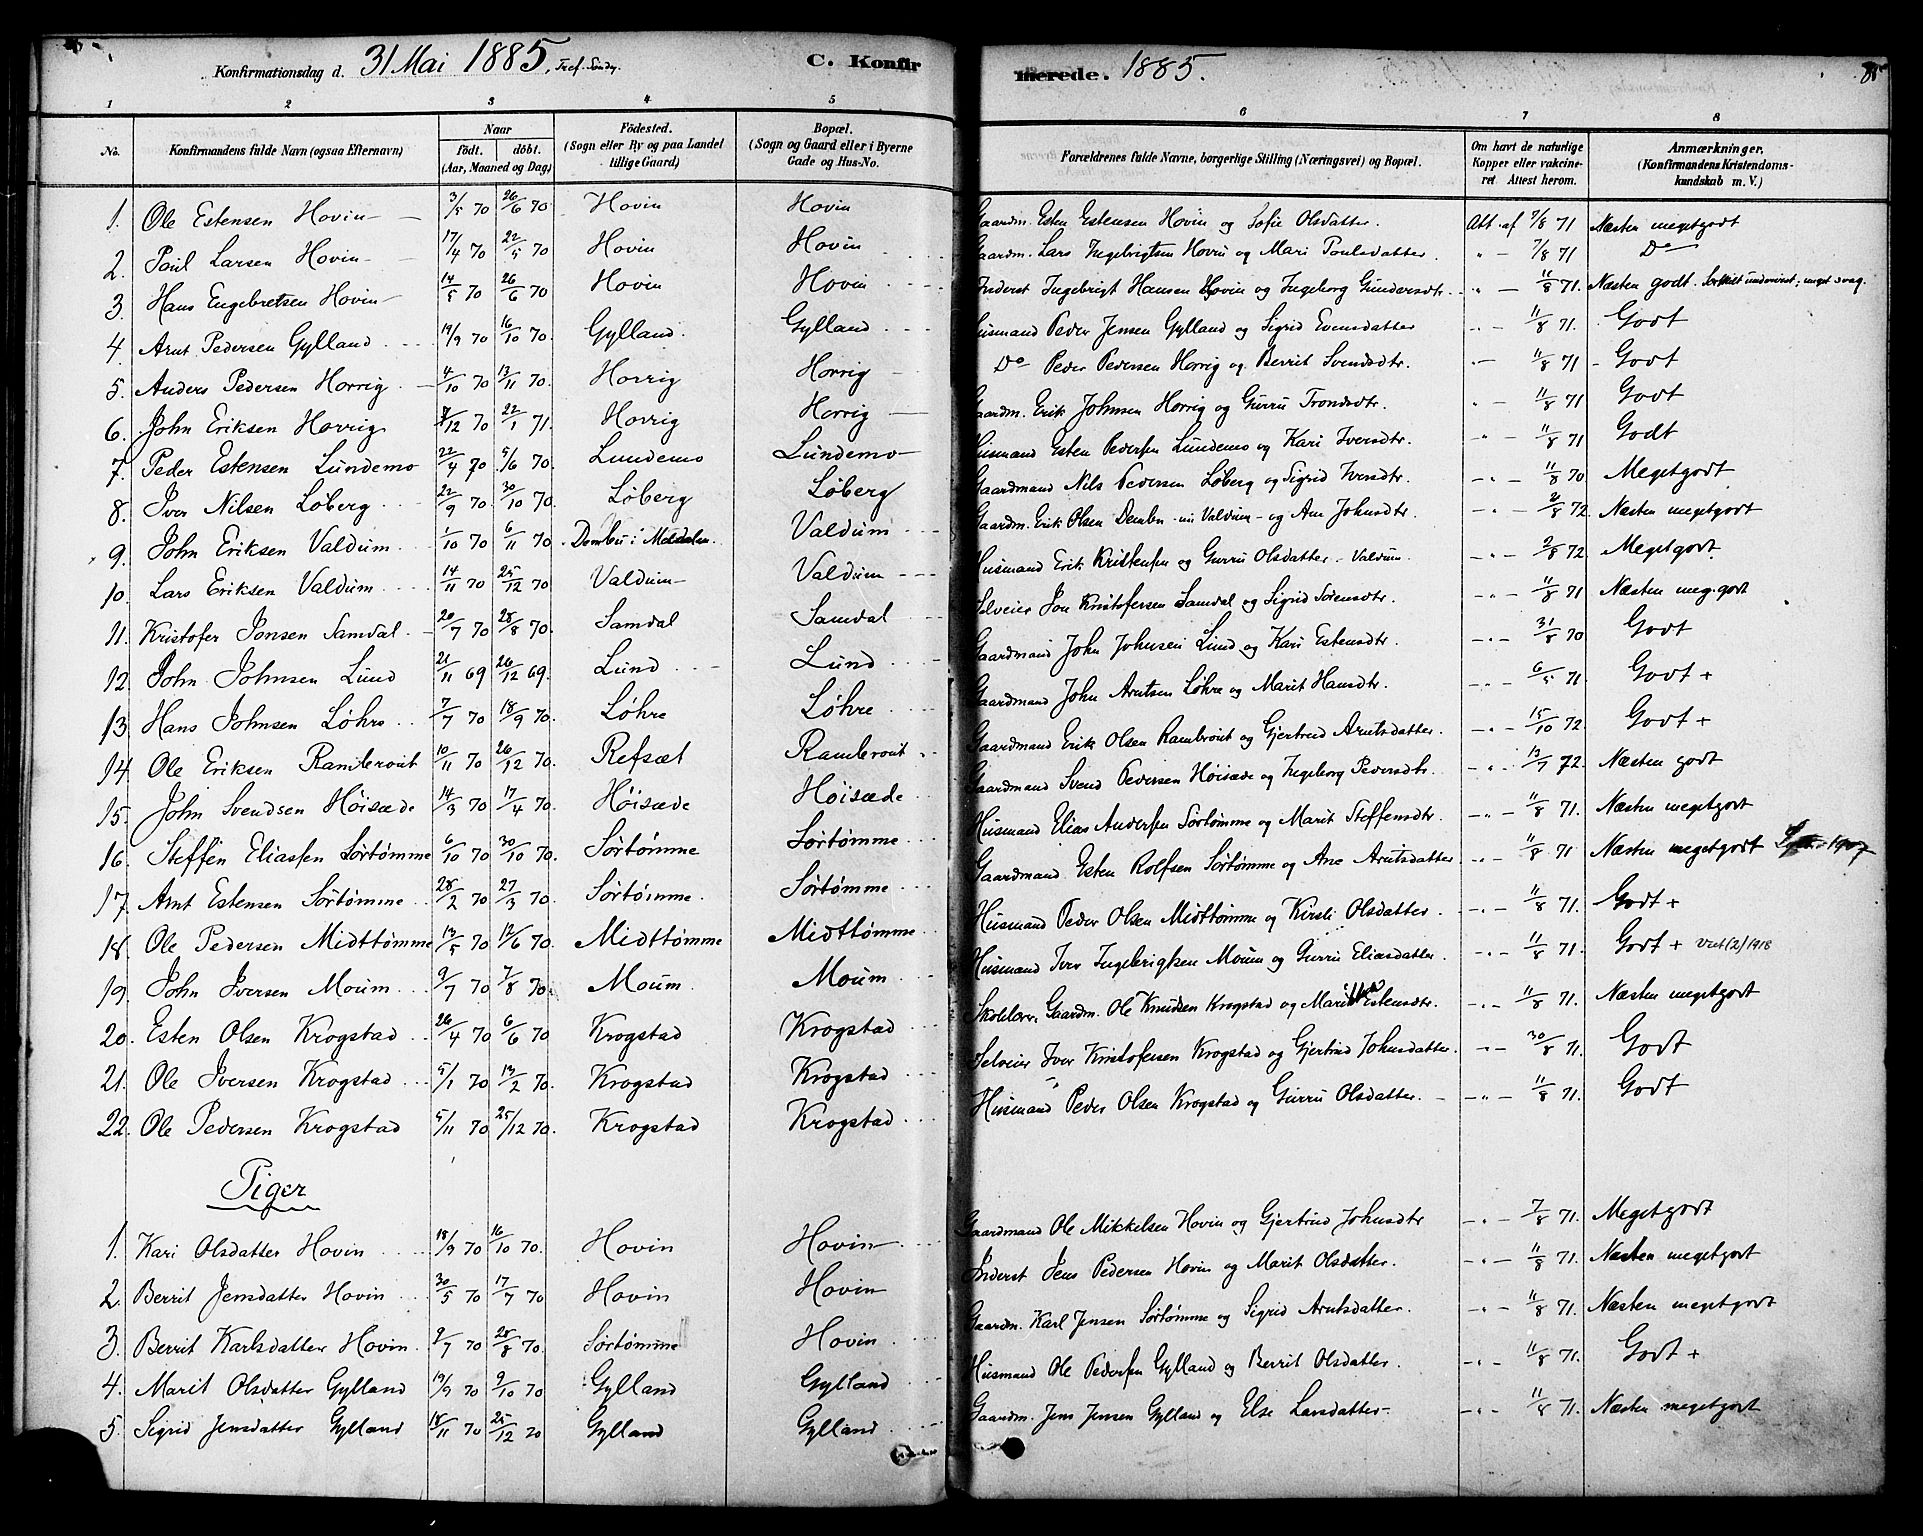 Konfirmationsdag d. 31 Mai 1885, Tref. Sondg. C. Konfirmerede. 1885. 85
1 2 3 4 5 6 7 8
No. Konfirmandens fulde Navn (ogsaa Efternavn) Naar født. døbt. (Aar, Maaned og Dag) Födested. (Sogn eller By og paa Landet tillige Gaard) Bopæl. (Sogn og Gaard eller i Byerne Gade og Hus-No. Forældrenes fulde Navne, borgerlige Stilling (Næringsvei) og Bopæl. Om havt de naturlige Kopper eller vakcineret. Attest herom. Anmærkninger. (Konfirmandens Kristendomskundskab m. V.)
1. Ole Estensen Hovin 3/5 70 26/6 70 Hovin Hovin Gaardm. Esten Estensen Hovin og Sofie Olsdatter. Att. af 7/8 71 Næsten megetgodt
2. Paul Larsen Hovin 17/4 70 22/5 70 Hovin Hovin Gaardm. Lars Ingebrigtsen Hovin og Mari Paulsdatter. 7/8 71 Do
3. Hans Engebretsen Hovin 14/5 70 26/6 70 Hovin Hovin Inderst Ingebrigt Hansen Hovin og Ingeborg Gundersdtr. 11/8 71. Næsten godt. meget svag.
4. Arnt Pedersen Gylland 19/9 70 16/10 70. Gylland Gylland Husmand Peder Jensen Gylland og Sigrid Evensdatter 11/8 71. Godt
5. Anders Pedersen Horrig 4/10 70 13/11 70. Horrig Horrig Do Peder Pedersen Horrig og Berrit Svendsdtr. 11/8 71 Godt
6. John Eriksen Horrig /12 70 22/1 71. Horrig Horrig Gaardm. Erik Johnsen Horrig og Gurru Trondsdtr. 11/8 71 Godt
7. Peder Estensen Lundemo 22/4 70 5/6 70. Lundemo Lundemo Husmand Esten Pedersen Lundemo og Kari Iversdtr. 11/8 71 Godt
8. Iver Nilsen Løberg 22/9 70 30/10 70. Løberg Løberg Gaardmand Nils Pedersen Løberg og Sigrid Iversdtr. 11/8 70 Megetgodt
9. John Eriksen Valdum 1/10 70 6/11 70 Dombu i Meldalen. Valdum Gaardm. Erik Olsen Dombu nu Valdum og Ane Johnsdtr. 2/8 72 Næsten megetgodt
10. Lars Eriksen Valdum 14/11 70 25/12 70 Valdum Valdum Husmand Erik Kristensen og Gurru Olsdatter Valdum 2/8 72 Megetgodt.
11. Kristofer Jonsen Samdal 20/7 70 28/8 70. Samdal Samdal Selveier Jon Kristofersen Samdal og Sigrid Sørensdtr. 11/8 71 Næsten meg. godt
12. John Johnsen Lund 21/11 69 26/12 69. Lund Lund Gaardmand John Johnsen Lund og Kari Estensdtr. 31/8 70 Godt
13. Hans Johnsen Løhre 7/7 70 18/9 70. Løhre Løhre Gaardmand John Arntsen Løhre og Marit Hansdtr. 6/5 71. Godt +
14. Ole Eriksen Rambrout 10/11 70 26/12 70. Refsæt Rambrout Gaardmand Erik Olsen Rambrout og Gjertrud Arntsdatter. 15/10 72. Godt +
15. John Svendsen Høisæde 14/3 70 17/4 70. Høisæde Høisæde Gaardmand Svend Pedersen Høisæde og Ingeborg Pedersdtr. 13/7 72. Næsten godt
16. Steffen Eliassen Sørtømme 6/10 70 30/10 70. Sørtømme Sørtømme Husmand Elias Andersen Sørtømme og Marit Steffensdtr. 11/8 71. Næsten megetgodt
17. Arnt Estensen Sørtømme 28/2 70 27/3 70. Sørtømme. Sørtømme Gaardmand Esten Rolfsen Sørtømme og Ane Arntsdatter 11/8 71 Næsten megetgodt 1907
18. Ole Pedersen Midttømme 13/5 70 12/6 70. Midttømme Midttømme Husmand Peder Olsen Midttømme og Kirsti Olsdatter. 11/8 71. Godt +
19. John Iversen Moum 9/7 70 7/8 70. Moum Moum Husmand Iver Ingebrigtsen Moum og Gurru Eliasdatter. 11/8 71. Godt + Vut (2) 1918
20. Esten Olsen Krogstad 26/4 70 6/6 70 Krogstad Krogstad Skolelær. Gaardm. Ole Knudsen Krogstad og Marit Estensdtr. 11/8 71. Næsten megetgodt
21. Ole Iversen Krogstad 5/1 70 13/2 70. Krogstad Krogstad Selveier Iver Kristofersen Krogstad og Gjertrud Johnsdatter 30/8 71. Godt
22. Ole Pedersen Krogstad 5/11 70 25/12 70. Krogstad Krogstad Husmand Peder Olsen Krogstad og Gurru Olsdatter. 11/8 71. Godt
Piger
1. Kari Olsdatter Hovin 18/9 70 16/10 70. Hovin Hovin Gaardmand Ole Mikkelsen Hovin og Gjertrud Johnsdtr 7/8 71. Megetgodt
2. Berrit Jensdatter Hovin 30/5 70 17/7 70 Hovin Hovin Inderst Jens Pedersen Hovin og Marit Olsdatter. 11/8 71. Næsten megetgodt
3. Berrit Karlsdatter Hovin 9/7 70 28/8 70. Sørtømme Hovin Gaardm. Karl Jensen Sørtømme og Sigrid Arntsdatter. 11/8 71. Næsten megetgodt
4. Marit Olsdatter Gylland 19/9 70 9/10 70 Gylland Gylland Husmand Ole Pedersen Gylland og Berrit Olsdatter. 11/8 71. Godt +
5. Sigrid Jensdatter Gylland 18/11 70 25/12 70 Gylland Gylland Gaardm. Jens Jensen Gylland og Else Larsdatter 11/8 71. Næsten megetgodt